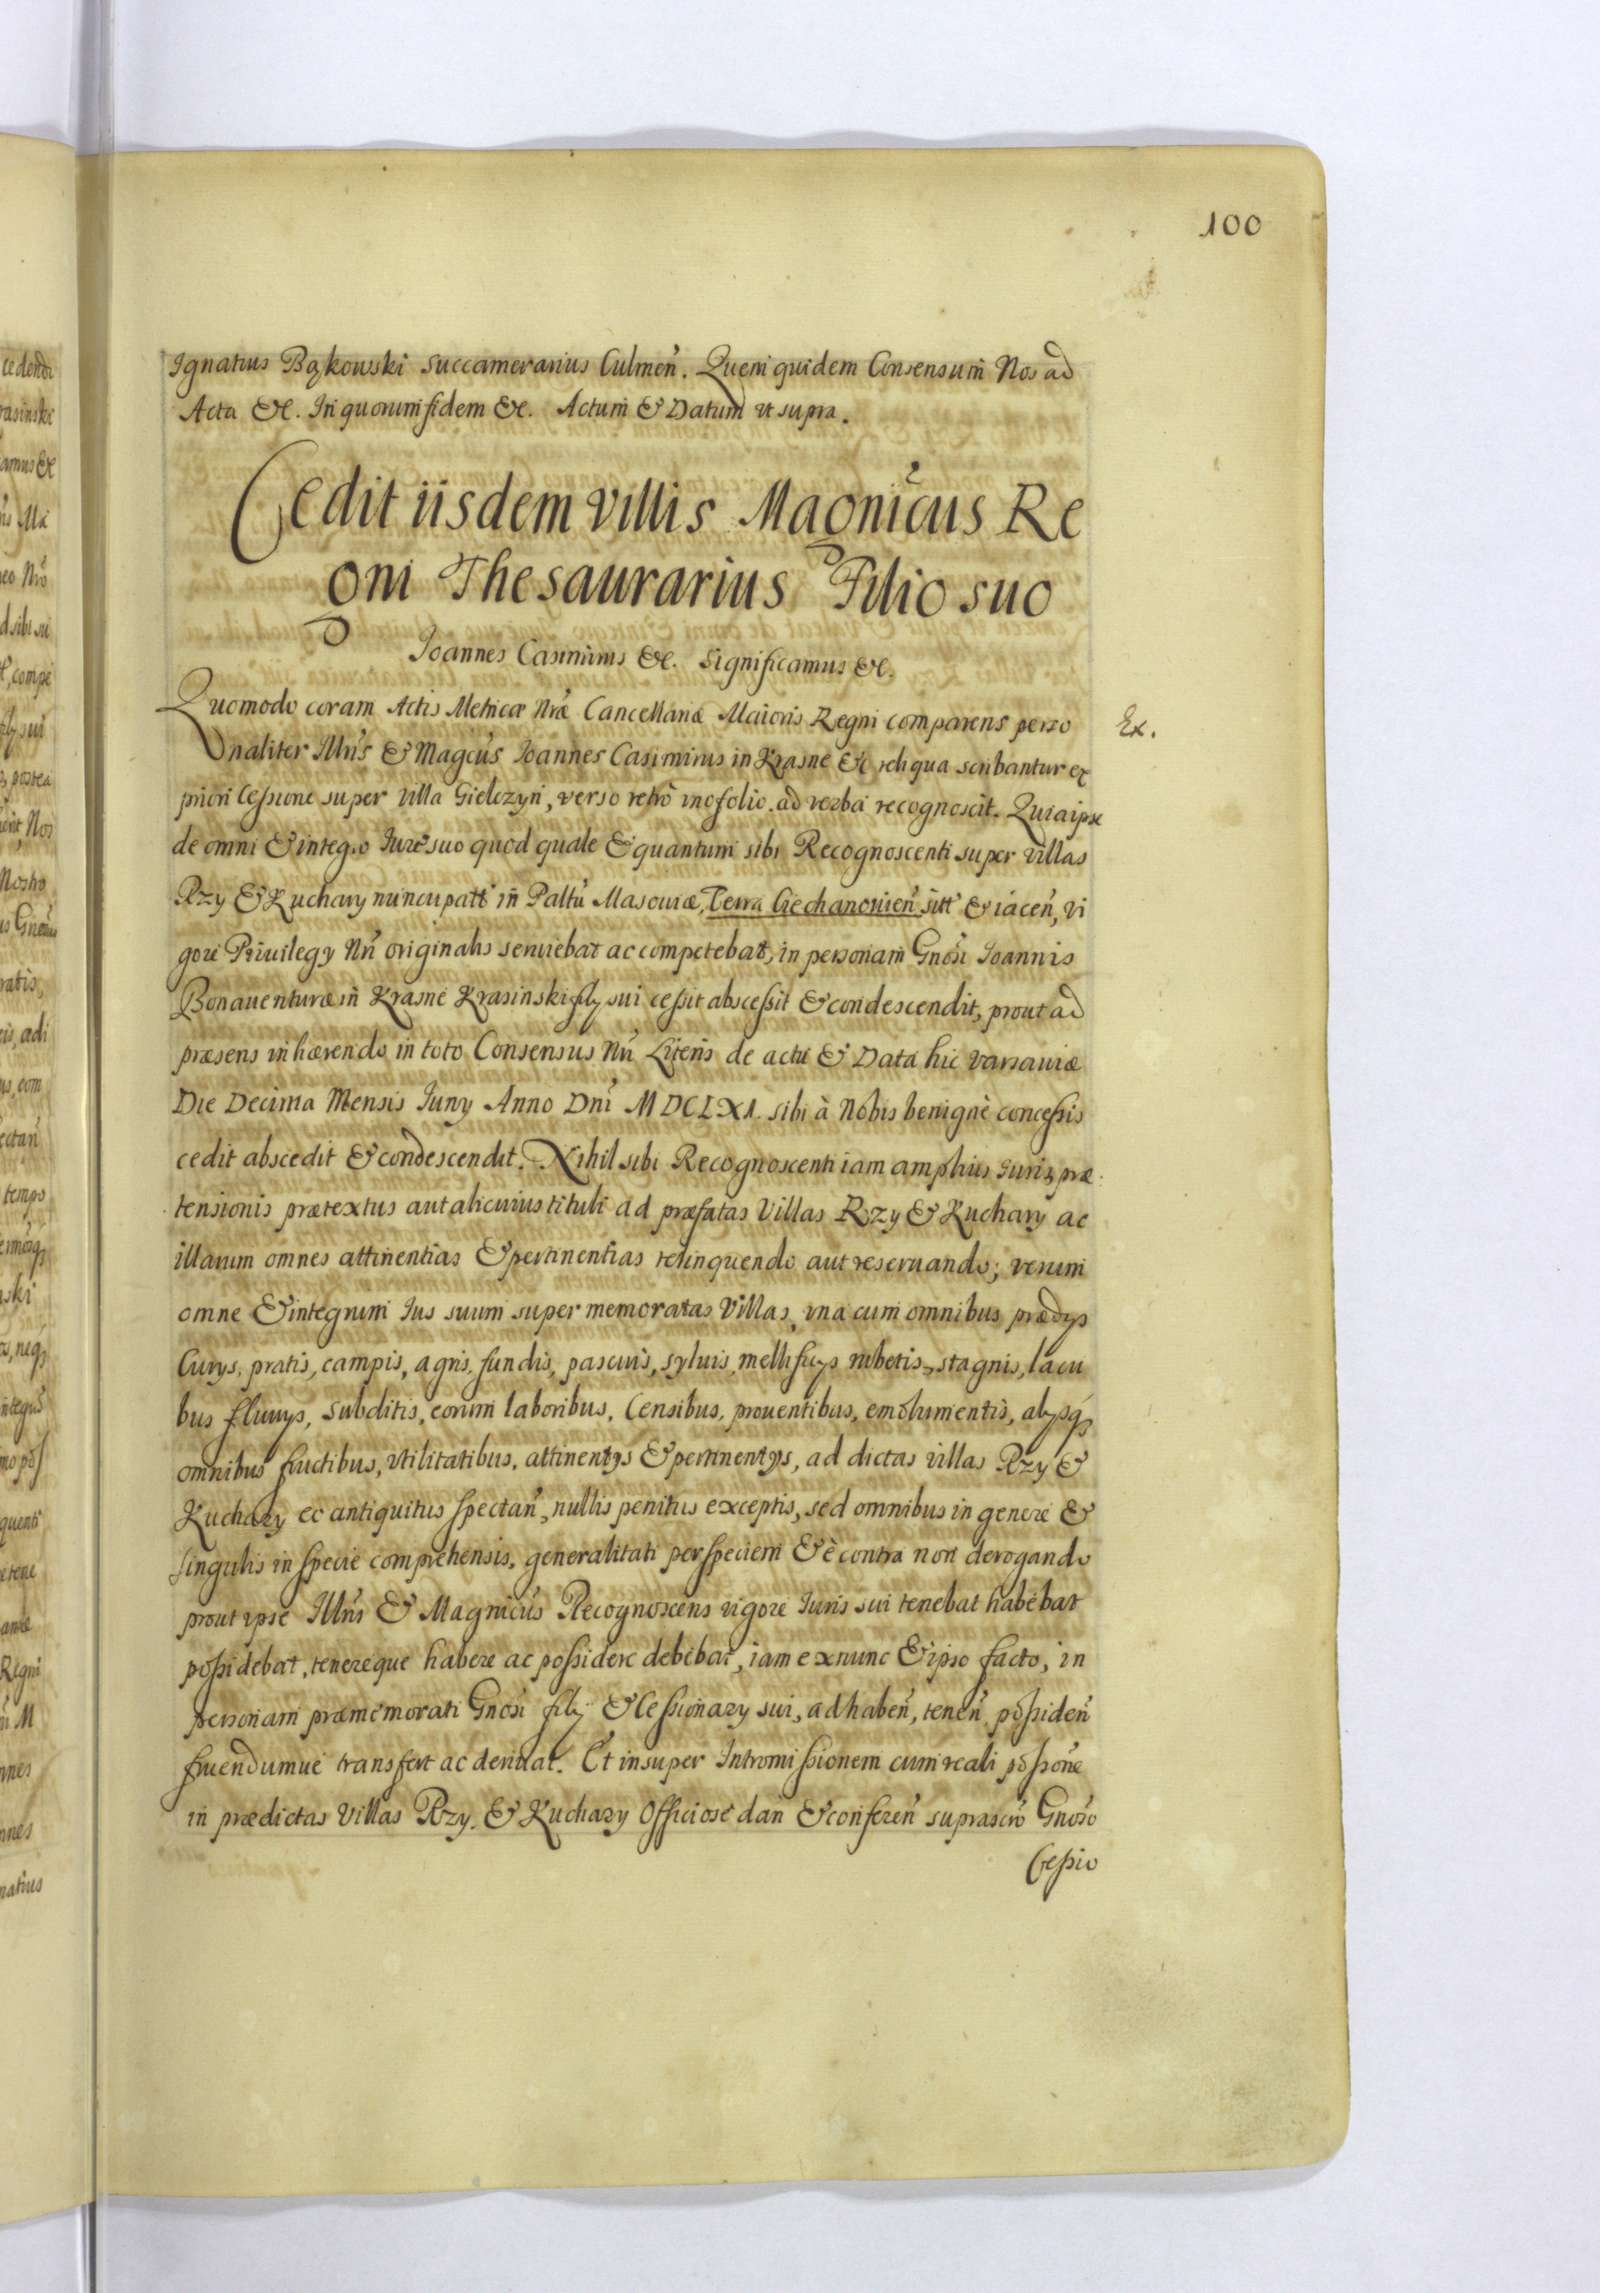 100
Ignatius Bąkowski Succamerarius Culmeñ. Quem quidem Consensum Nos ad
Acta &c. In quorum fidem &c. Actum & Datum ut supra.
Cedit iisdem villis Magnicus Re
gni Thesaurarius Filio suo
Joannes Casimirus &c. Significamus &c.
Quomodo coram Actis Metricæ Nræ Cancellariæ Maioris Regni comparens perso
naliter Illris & Magcus Joannes Casimirus in Krasne &c reliqua scribantur ex
priori Cessione super villa Gielczyn, verso retrò folio. ad verba recognoscit. Quia ipse
de omni & integro Jure suo quod quale & quantum sibi Recognoscenti super villas
Rzy & Kuchary nuncupatt in Paltu Masouiæ, Terra Ciechanouieñ sitt & iaceñ, vi
gore Priuilegy Nri originalis seruiebat ac competebat, in personam Gnosi Joannis
Bonauenturæ in Krasne Krasinski fily sui cessit abscessit & condescendit, prout ad
præsens inhærendo in toto Consensus Nri Literis de actu & Data hic Varsauiæ
Die Decima Mensis Juny Anno Dni MDCLXI. sibi à Nobis benignè concessis
cedit abscedit & condescendit. Nihil sibi Recognoscenti iam amplius Juris, præ
tensionis prætextus aut alicuius tituli ad præfatas Villas Rzy & Kuchary ac
illarum omnes attinentias & pertinentias relinquendo aut reseruando; verum
omne & integrum Jus suum super memoratas Villas, vna cum omnibus prædys
Curys, pratis, campis, agris, fundis, pascuis, syluis, mellificys rubetis, stagnis, lacu
bus fluuys, subditis, eorum laboribus, Censibus, prouentibus, emolumentis, alysq;
omnibus fructibus, vtilitatibus, attinentys & pertinentys, ad dictas villas Rzy &
Kuchary ec antiquitus spectañ, nullis penitus exceptis, sed omnibus in genere &
singulis in specie comprehensis, generalitati per speciem & è contra non derogando
prout ipse Illris & Magnicus Recognoscens vigore Juris sui tenebat habebat
possidebat, tenereque habere ac possidere debebat, iam ex nunc & ipso facto, in
personam præmemorati Gnosi fily & Cessionary sui, ad habeñ, teneñ possideñ
fruendumue transfert ac deriuat. Et insuper Intromissionem cum reali possone
in prædictas Villas Rzy & Kuchary Officiose dañ & confereñ suprascro Gnoso
Cessio
Ex.